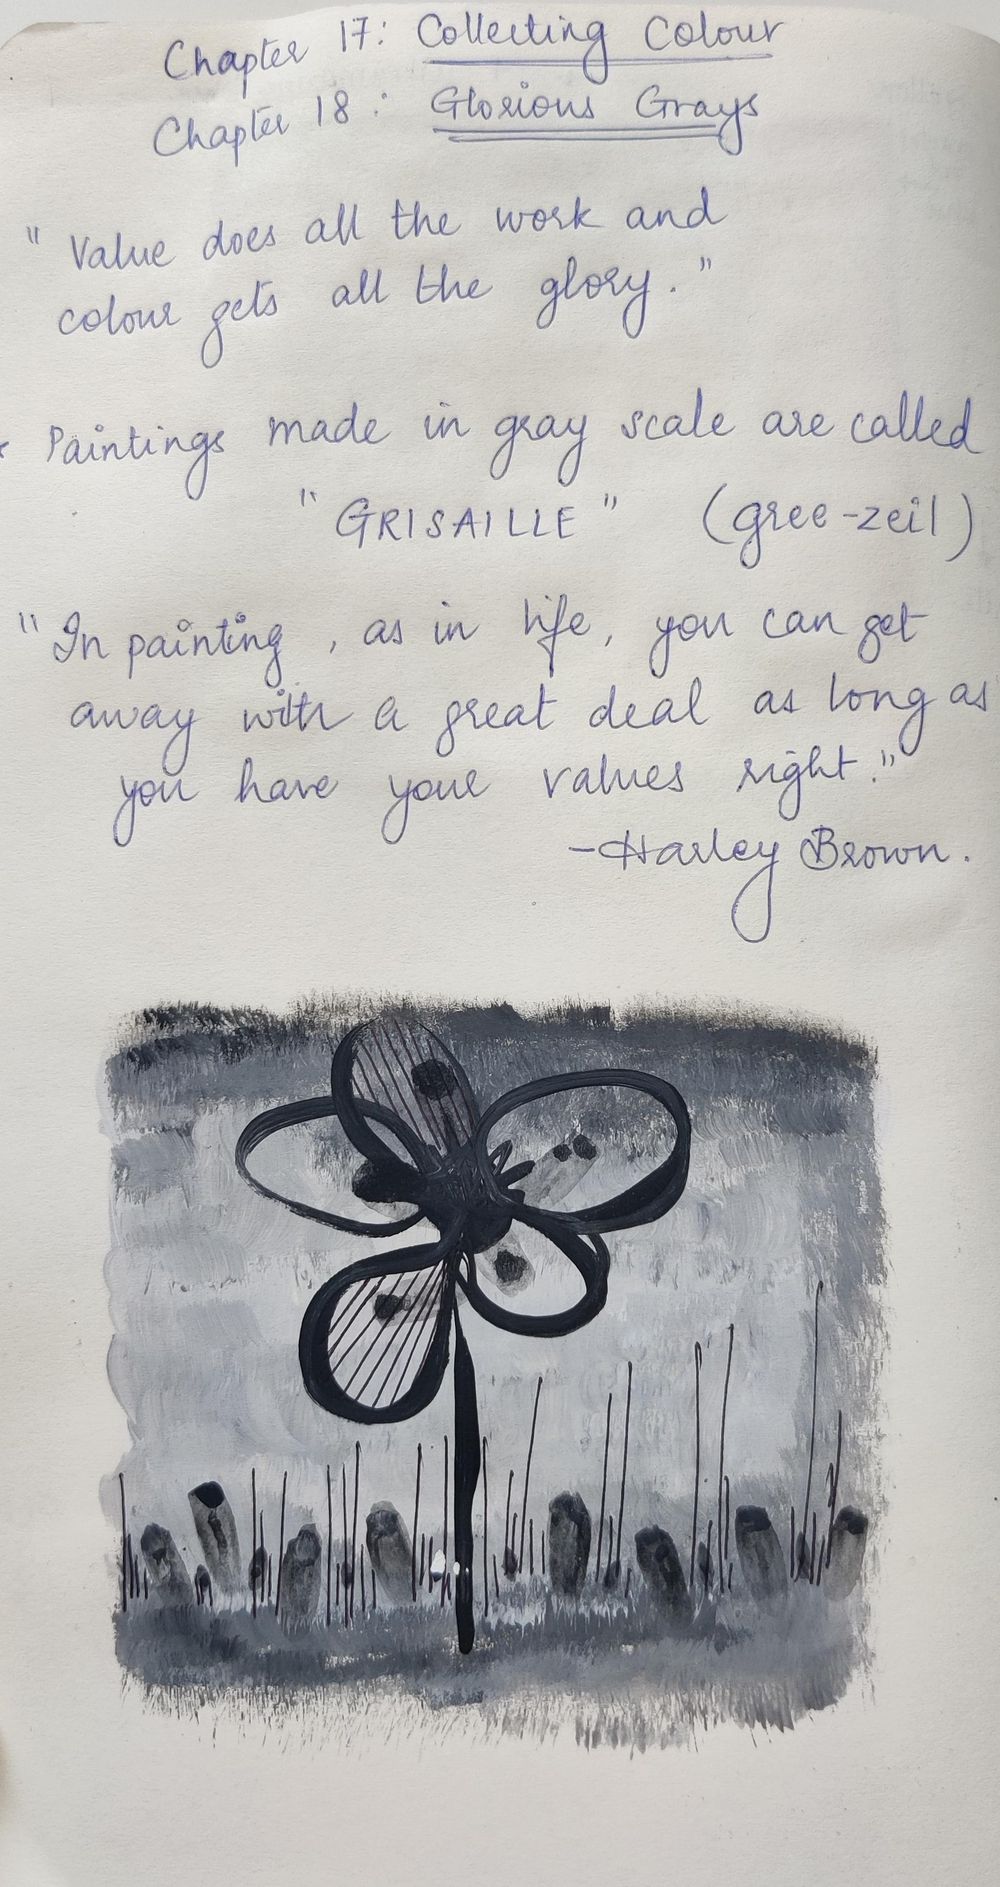 Chapter 17: Collecting Colour
Chapter 18: Glorious Grays
"Value does all the work and
colour gets all the glory."
* Paintings made in gray scale are called
"GRISAILLE" (gree-zeil)
"In painting, as in life, you can get
away with a great deal as long as
you have your values right."
-Harley Brown.